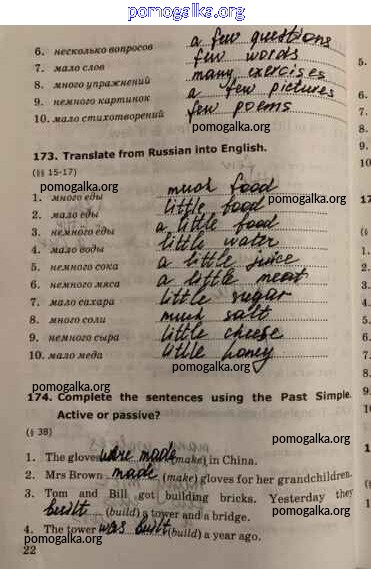 pomogalka.org
6. несколько вопросов a few questions
7. мало слов few words
8. много упражнений many exercises
9. немного картинок a few pictures
10. мало стихотворений few poems
pomogalka.org
173. Translate from Russian into English.
(§§ 15-17)
pomogalka.org pomogalka.org
1. много еды much food
2. мало еды little food
3. немного еды a little food
4. мало воды little water
5. немного сока a little juice
6. немного мяса a little meat
7. мало сахара little sugar
8. много соли much salt
9. немного сыра little cheese
10. мало меда little honey
pomogalka.org pomogalka.org
174. Complete the sentences using the Past Simple.
Active or passive?
(§ 38)
pomogalka.org
1. The gloves were made (make) in China.
2. Mrs Brown made (make) gloves for her grandchildren.
3. Tom and Bill got building bricks. Yesterday they
built (build) a tower and a bridge.
pomogalka.org
4. The tower was built (build) a year ago.
22
pomogalka.org pomogalka.org